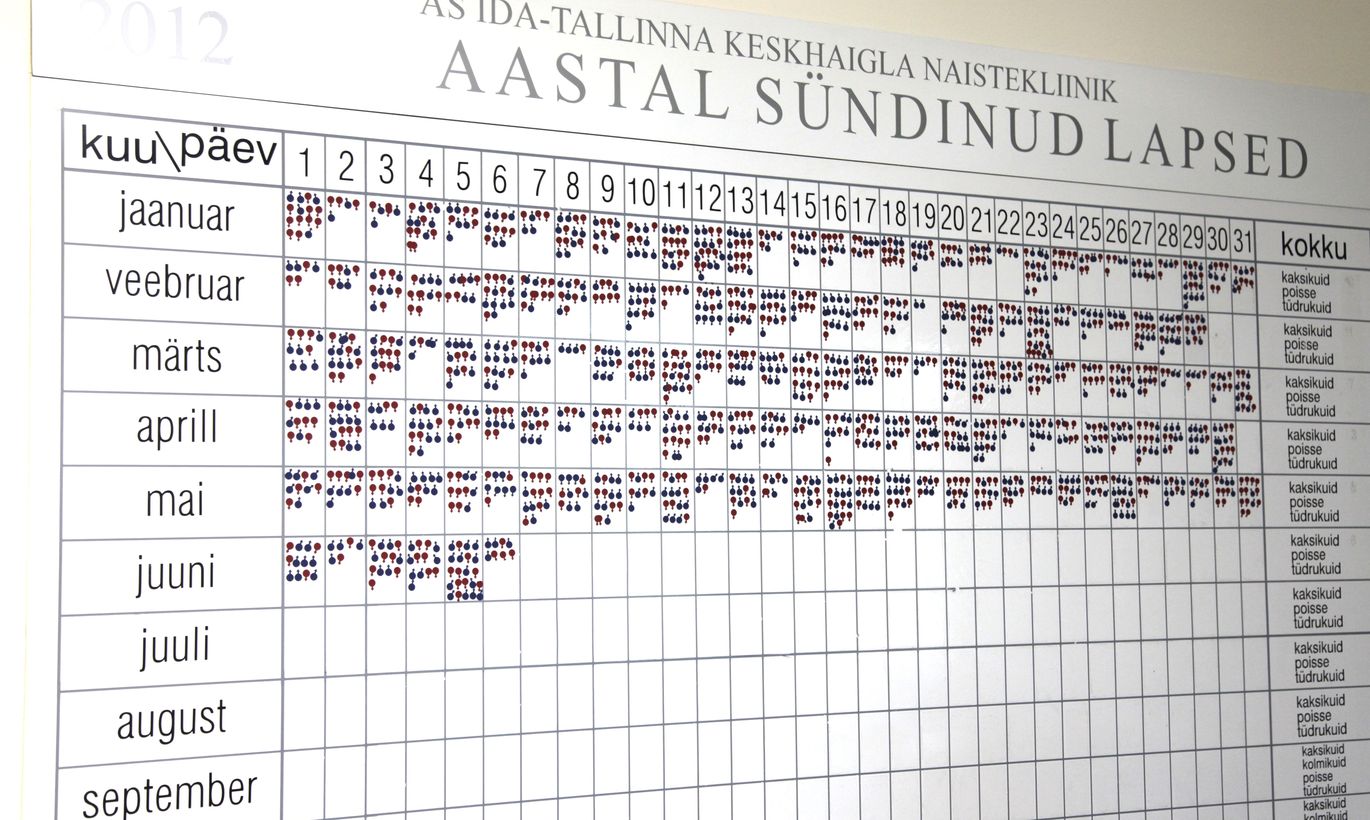 2012
AS IDA-TALLINNA KESKHAIGLA NAISTEKLIINIK
AASTAL SÜNDINUD LAPSED
kuu\päev 1 2 3 4 5 6 7 8 9 10 11 12 13 14 15 16 17 18 19 20 21 22 23 24 25 26 27 28 29 30 31 kokku
jaanuar
kaksikuid
poisse
tüdrukuid
veebruar
kaksikuid
poisse
tüdrukuid
märts
kaksikuid
poisse
tüdrukuid
aprill
kaksikuid
poisse
tüdrukuid
mai
kaksikuid
poisse
tüdrukuid
juuni
kaksikuid
poisse
tüdrukuid
juuli
kaksikuid
poisse
tüdrukuid
august
kaksikuid
poisse
tüdrukuid
september
kaksikuid
poisse
tüdrukuid
kaksikuid
kolmikuid
poisse
tüdrukuid
kaksikuid
kolmikuid